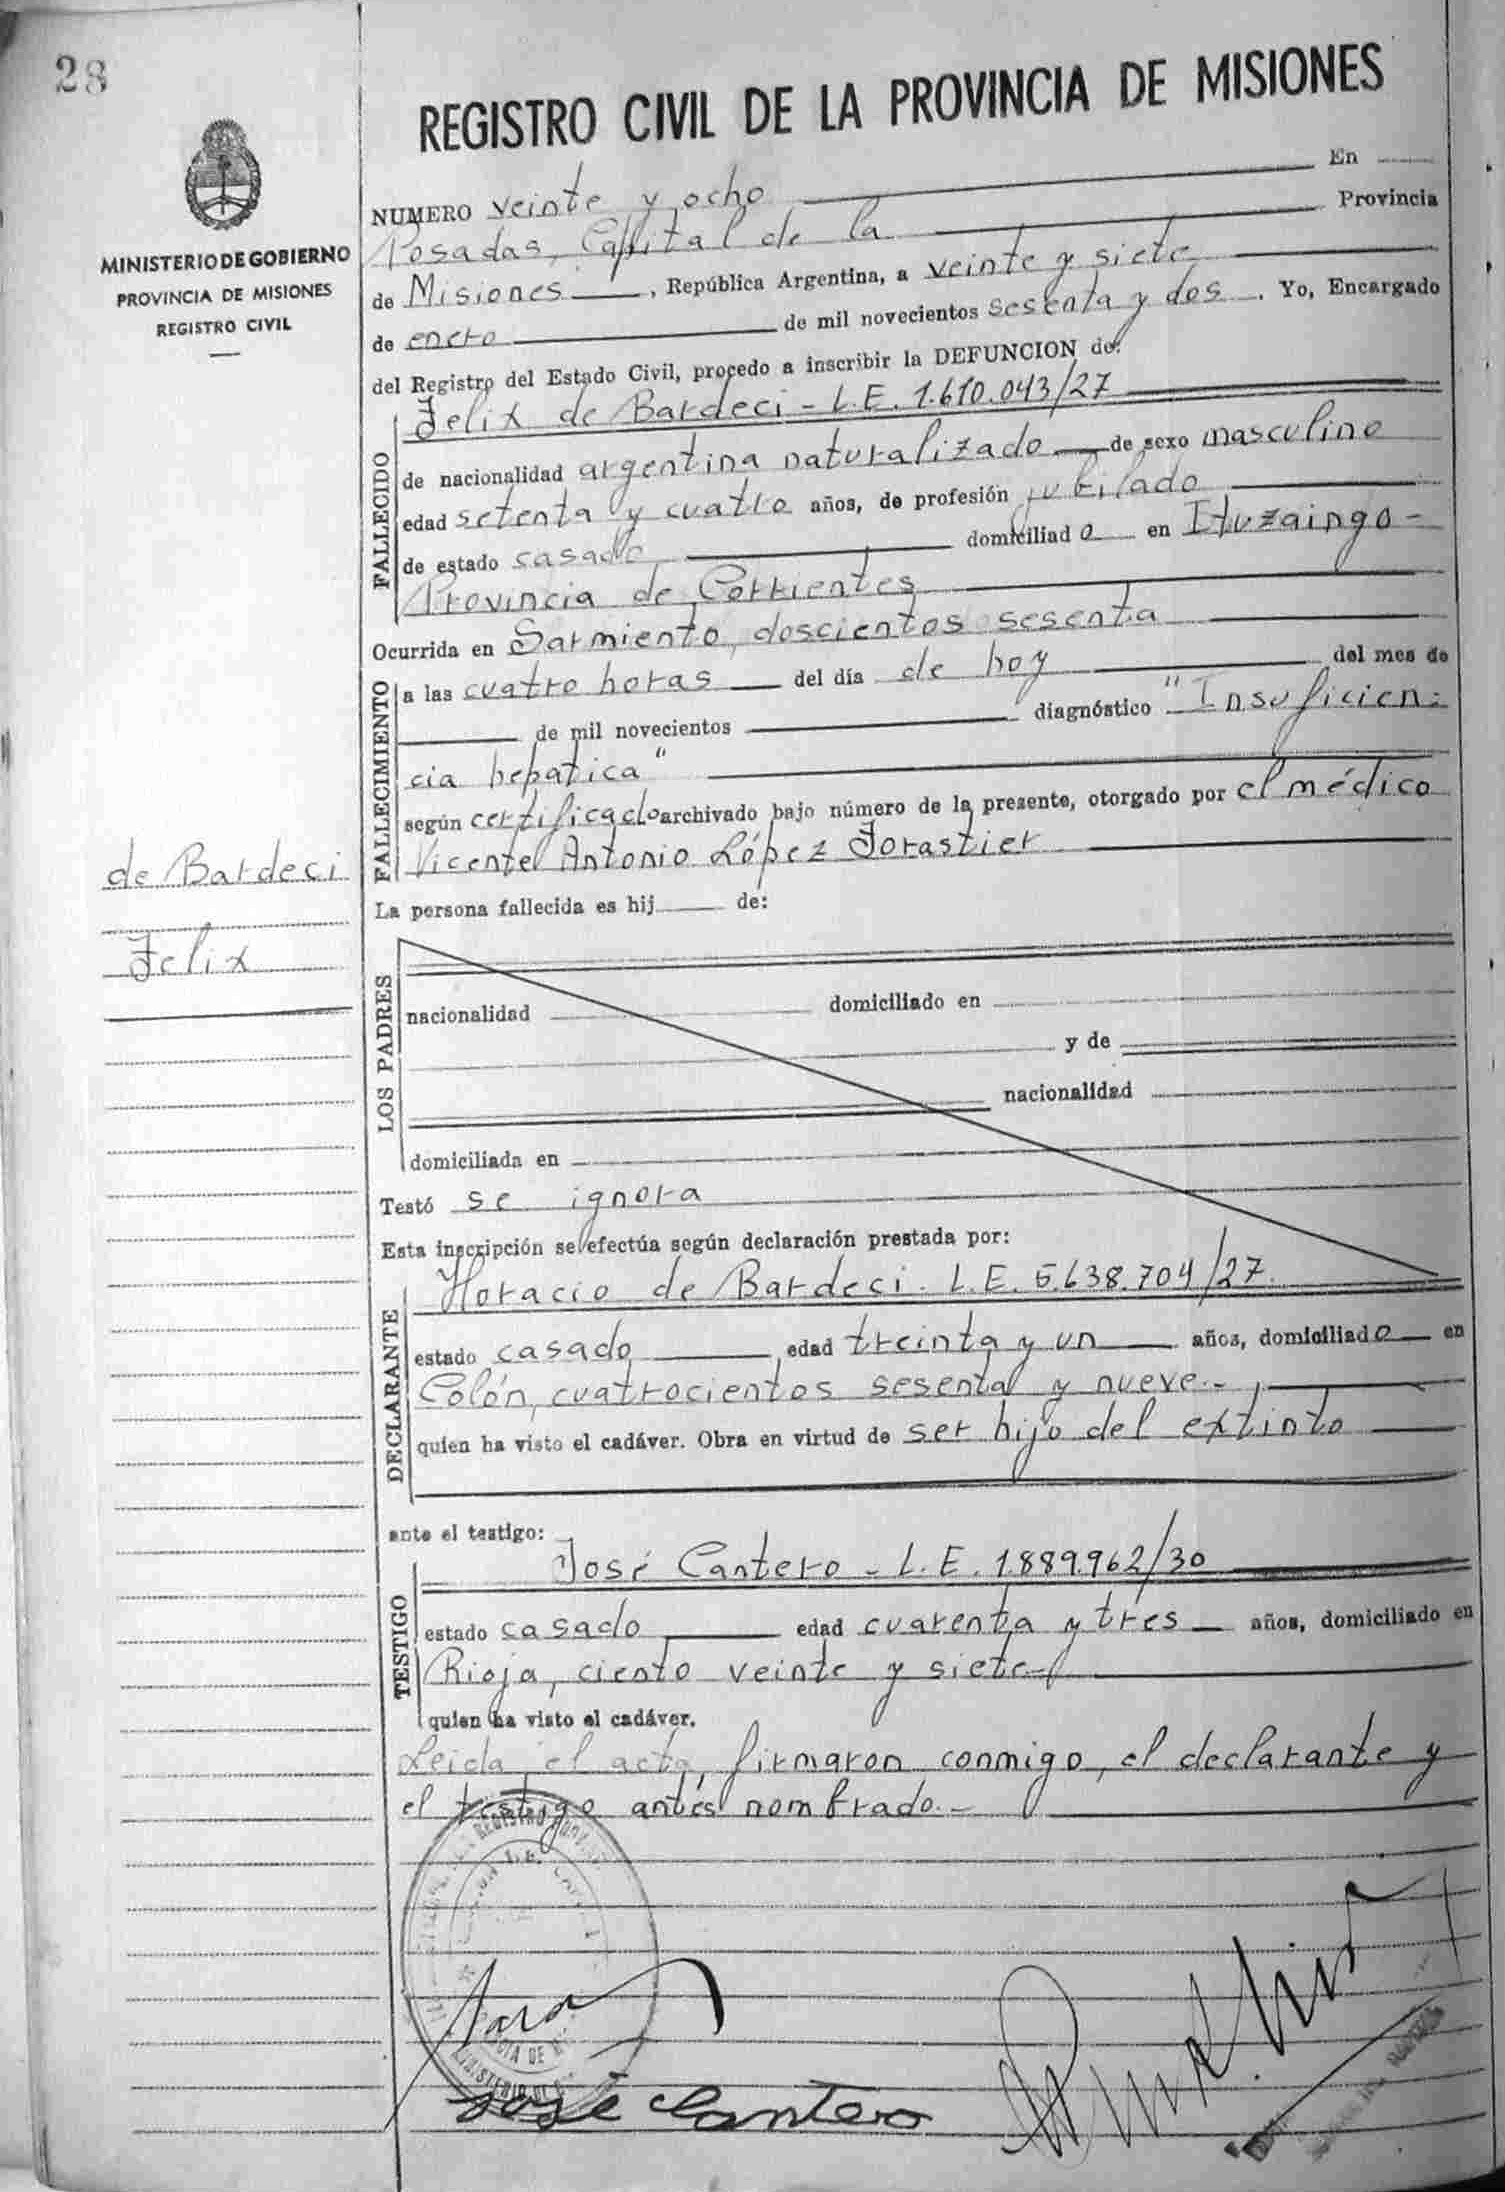 28
REGISTRO CIVIL DE LA PROVINCIA DE MISIONES
MINISTERIO DE GOBIERNO
PROVINCIA DE MISIONES
REGISTRO CIVIL
NUMERO veinte y ocho En
Posadas, Capital de la Provincia
de Misiones, República Argentina, a veinte y siete
de enero de mil novecientos sesenta y dos. Yo, Encargado
del Registro del Estado Civil, procedo a inscribir la DEFUNCION de:
FALLECIDO
Felix de Bardeci - L.E. 1.610.043/27
de nacionalidad argentina naturalizado de sexo masculino
edad setenta y cuatro años, de profesión jubilado
de estado casado domiciliado en Ituzaingo-
Provincia de Corrientes
Ocurrida en Sarmiento, doscientos sesenta
FALLECIMIENTO
a las cuatro horas del día de hoy del mes de
de mil novecientos diagnóstico "Insuficien=
cia hepatica"
según certificado archivado bajo número de la presente, otorgado por el médico
Vicente Antonio López Forastier
de Bardeci
Felix
La persona fallecida es hij de:
LOS PADRES
nacionalidad domiciliado en
y de
nacionalidad
domiciliada en
Testó se ignora
Esta inscripción se efectúa según declaración prestada por:
DECLARANTE
Horacio de Bardeci. L.E. 5.638.704/27.
estado casado edad treinta y un años, domiciliado en
Colón, cuatrocientos sesenta y nueve.-
quien ha visto el cadáver. Obra en virtud de ser hijo del extinto
ante el testigo:
TESTIGO
José Cantero - L.E. 1.889.962/30
estado casado edad cuarenta y tres años, domiciliado en
Rioja, ciento veinte y siete-
quien ha visto el cadáver.
Leida el acta, firmaron conmigo, el declarante y
el testigo antes nombrado.-
José Cantero